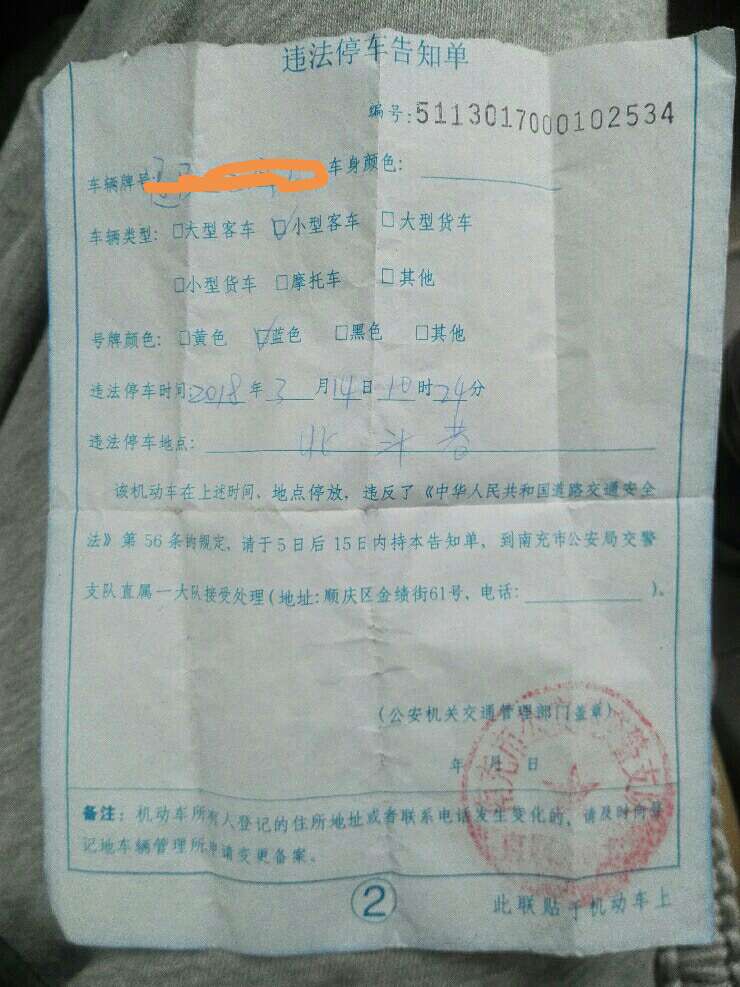 违法停车告知单
编号:5113017000102534
车辆牌号: 车身颜色:
车辆类型: □大型客车 ☑小型客车 □大型货车
□小型货车 □摩托车 □其他
号牌颜色: □黄色 ☑蓝色 □黑色 □其他
违法停车时间:2018年3月14日10时24分
违法停车地点: 北斗
该机动车在上述时间、地点停放，违反了《中华人民共和国道路交通安全
法》第56条的规定，请于5日后15日内持本告知单、到南充市公安局交警
支队直属一大队接受处理(地址:顺庆区金绩街61号、电话: )。
(公安机关交通管理部门盖章)
年 月 日
备注: 机动车所有人登记的住所地址或者联系电话发生变化的，请及时向登
记地车辆管理所申请变更备案。
②
此联贴于机动车上